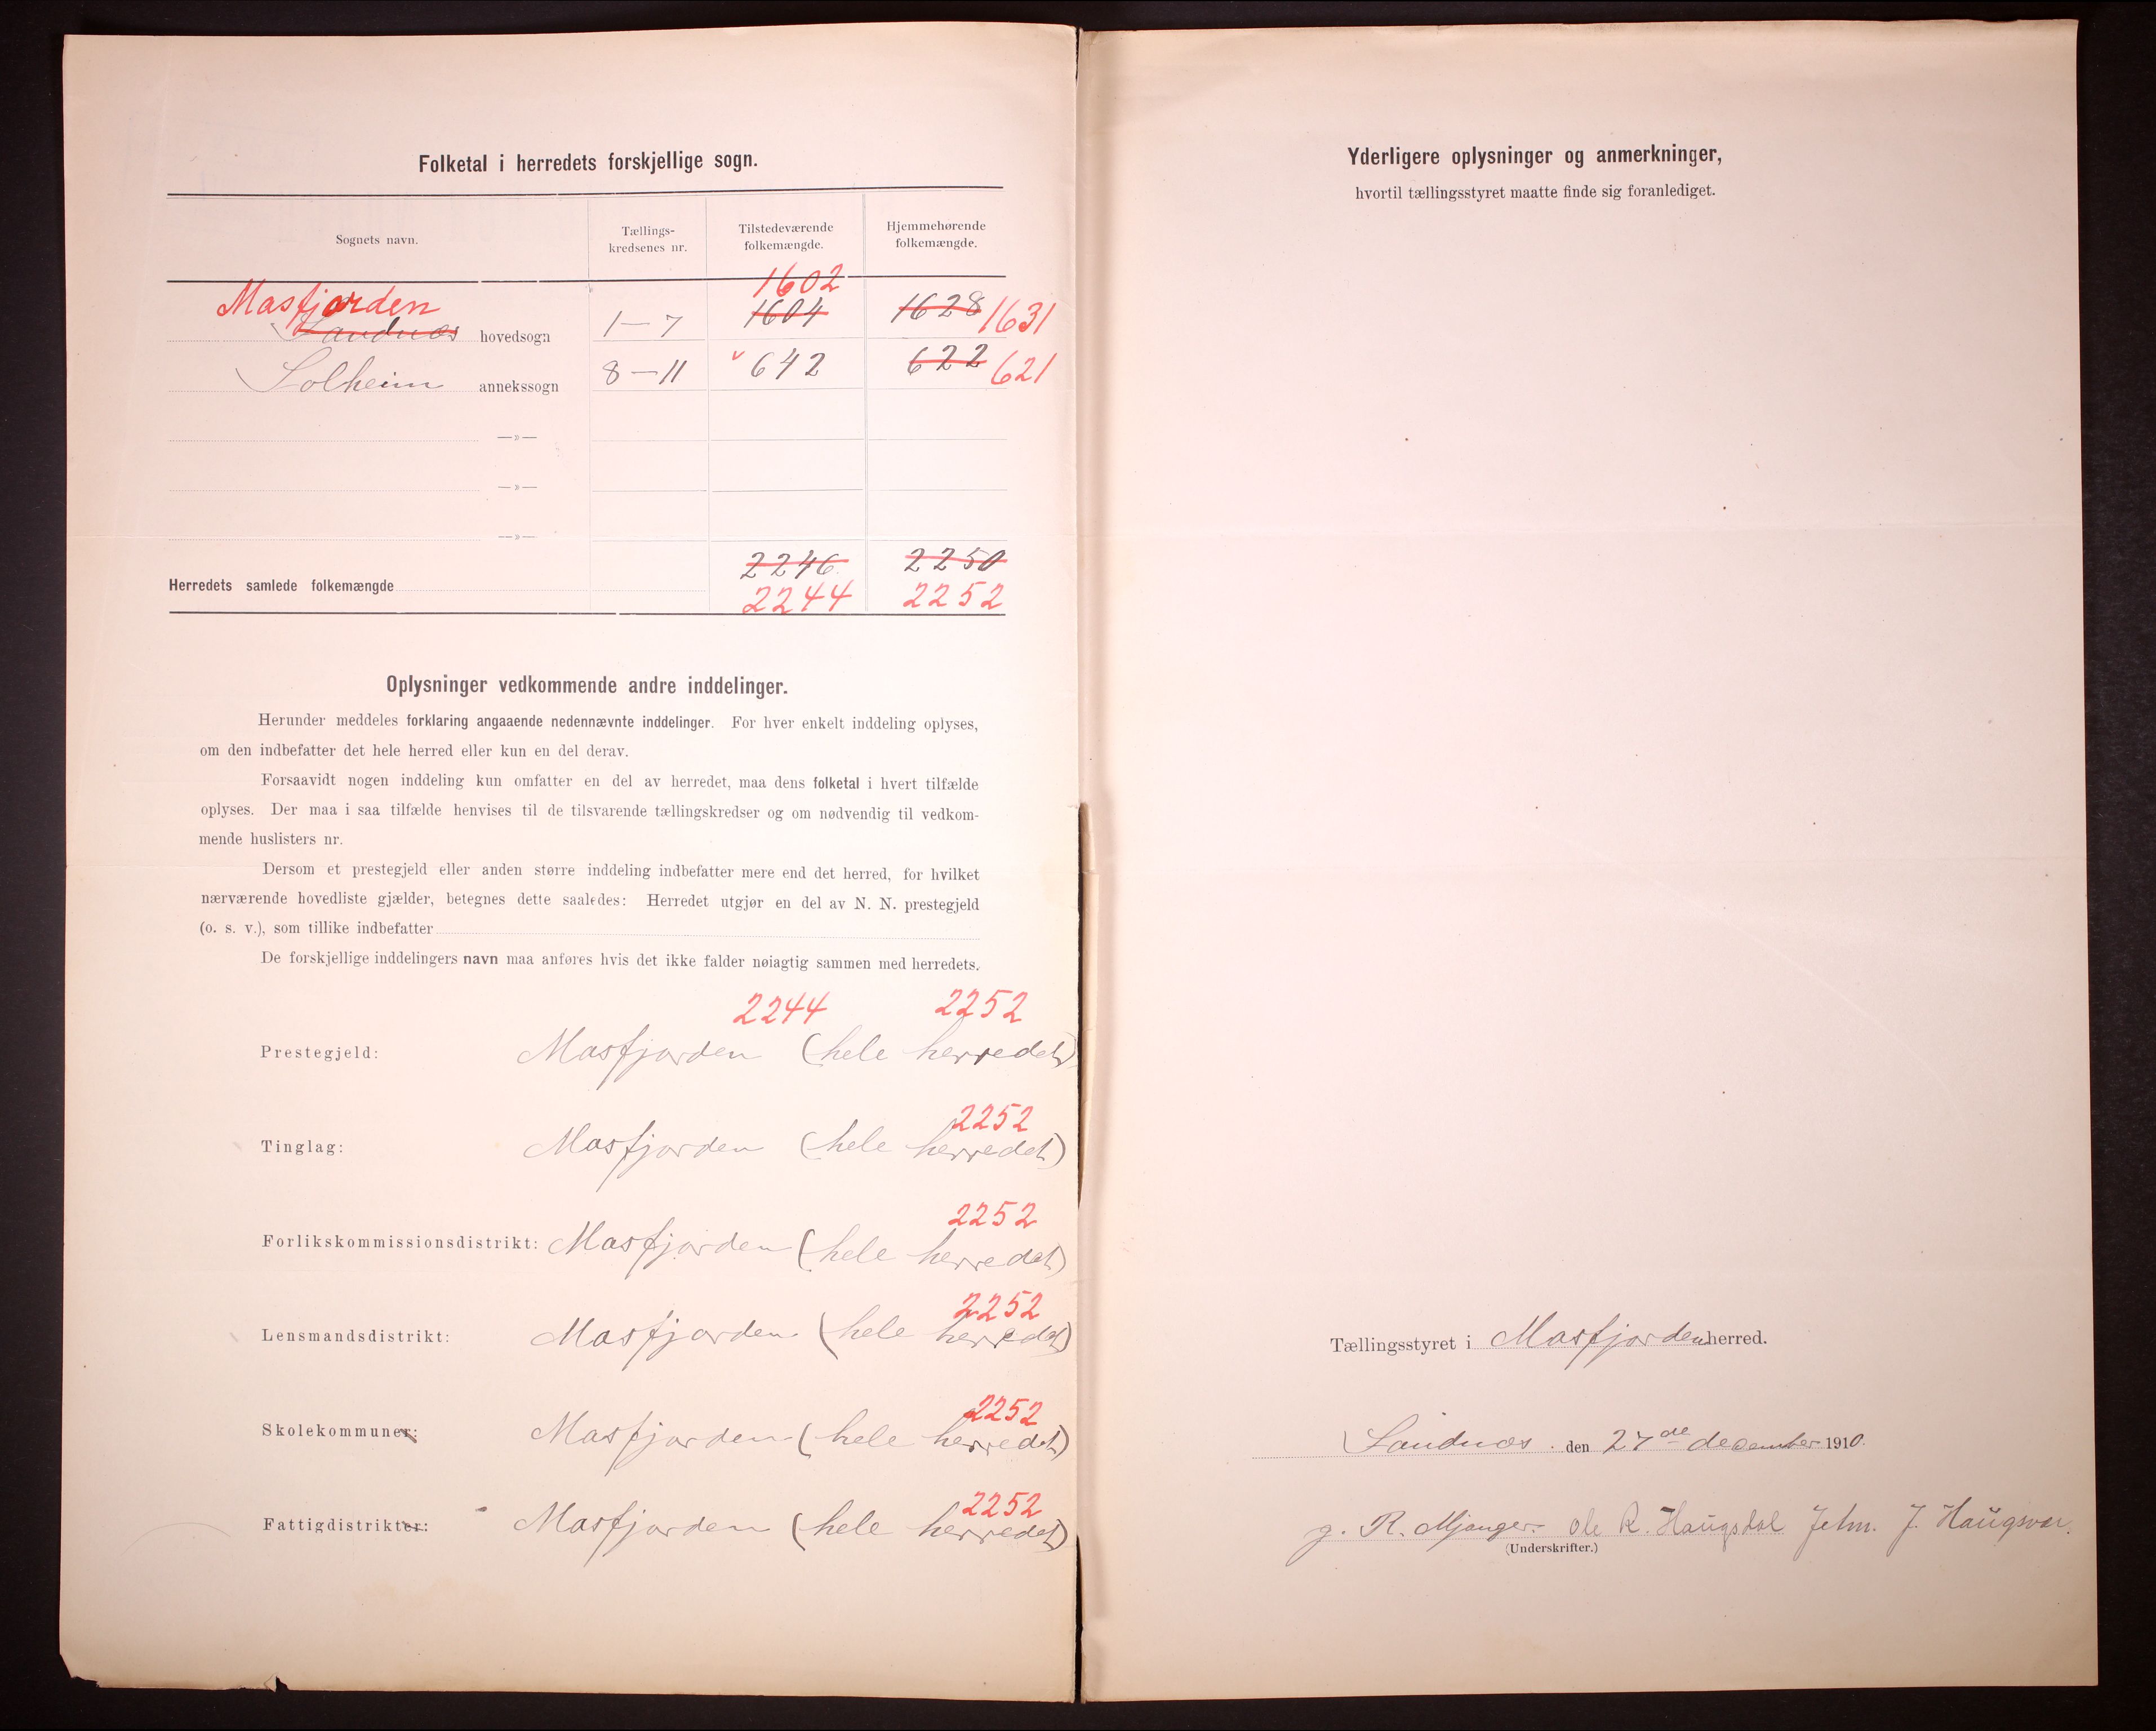 Folketal i herredets forskjellige sogn.
Sognets navn.
Tællings-
kredsenes nr.
Tilstedeværende
folkemængde.
Hjemmehørende
folkemængde.
1602
Masfjorden
Sandnæs hovedsogn 1—7 1604 1628 1631
Solheim annekssogn 8—11 v 642 622 621
—»—
—»—
—»—
2246 2250
Herredets samlede folkemængde 2244 2252
Oplysninger vedkommende andre inddelinger.
Herunder meddeles forklaring angaaende nedennævnte inddelinger. For hver enkelt inddeling oplyses,
om den indbefatter det hele herred eller kun en del derav.
Forsaavidt nogen inddeling kun omfatter en del av herredet, maa dens folketal i hvert tilfælde
oplyses. Der maa i saa tilfælde henvises til de tilsvarende tællingskredser og om nødvendig til vedkom-
mende huslisters nr.
Dersom et prestegjeld eller anden større inddeling indbefatter mere end det herred, for hvilket
nærværende hovedliste gjælder, betegnes dette saaledes: Herredet utgjør en del av N. N. prestegjeld
(o. s. v.), som tillike indbefatter
De forskjellige inddelingers navn maa anføres hvis det ikke falder nøiagtig sammen med herredets.
2244 2252
Prestegjeld: Masfjorden (hele herredet)
2252
Tinglag: Masfjorden (hele herredet)
2252
Forlikskommissionsdistrikt: Masfjorden (hele herredet)
2252
Lensmandsdistrikt: Masfjorden (hele herredet)
2252
Skolekommuner: Masfjorden (hele herredet)
2252
Fattigdistrikter: Masfjorden (hele herredet)
Yderligere oplysninger og anmerkninger,
hvortil tællingsstyret maatte finde sig foranlediget.
Tællingsstyret i Masfjorden herred.
Sandnæs den 27de december 1910.
R. Mjanger. Ole R. Haugsdal J. Haugsvær.
(Underskrifter.)